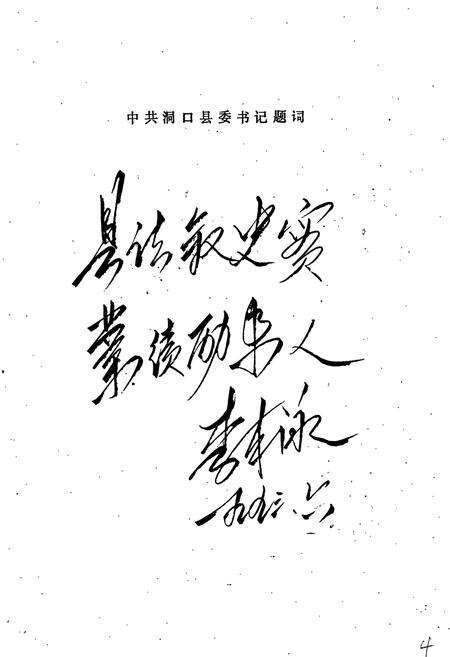 中共洞口县委书记题词
县志叙史实
业绩励来人
李
一九九二.六
4